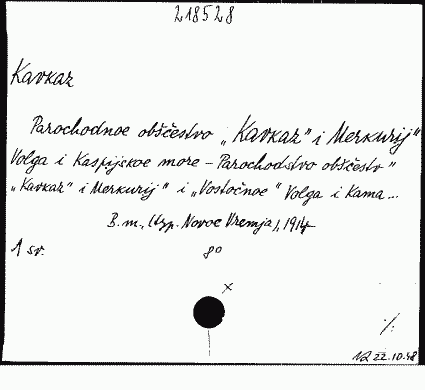 218528
Kavkaz
Parochodnoe obščestvo „Kavkaz" i Merkurij"
Volga i Kaspijskoe more – Parochodstvo obščestv"
„Kavkaz" i Merkurij" i „Vostočnoe" Volga i Kama...
B. m., (typ. Novoe Vremja), 1914
1 sv. 8°
x
22.10.48